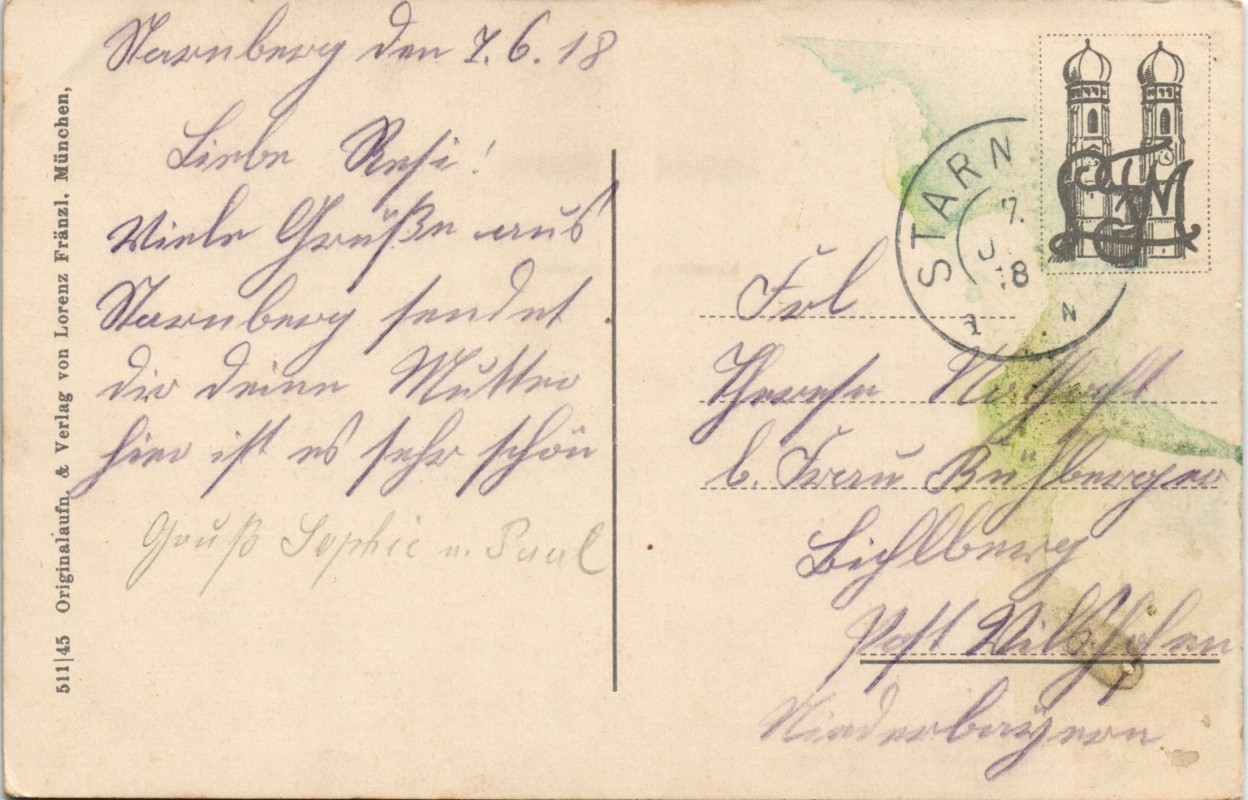 Starnberg den 7.6.18
Liebe Resi!
Viele Grüße aus
Starnberg sendet
dir deine Mutter
hier ist es sehr schön
Gruß Sophie u. Paul
511|45 Originalaufn. & Verlag von Lorenz Fränzl, München,
STARN
7.
18
N
LFM
Frl
Therese
b. Frau
Bichlberg
Post Vilshofen
Niederbayern